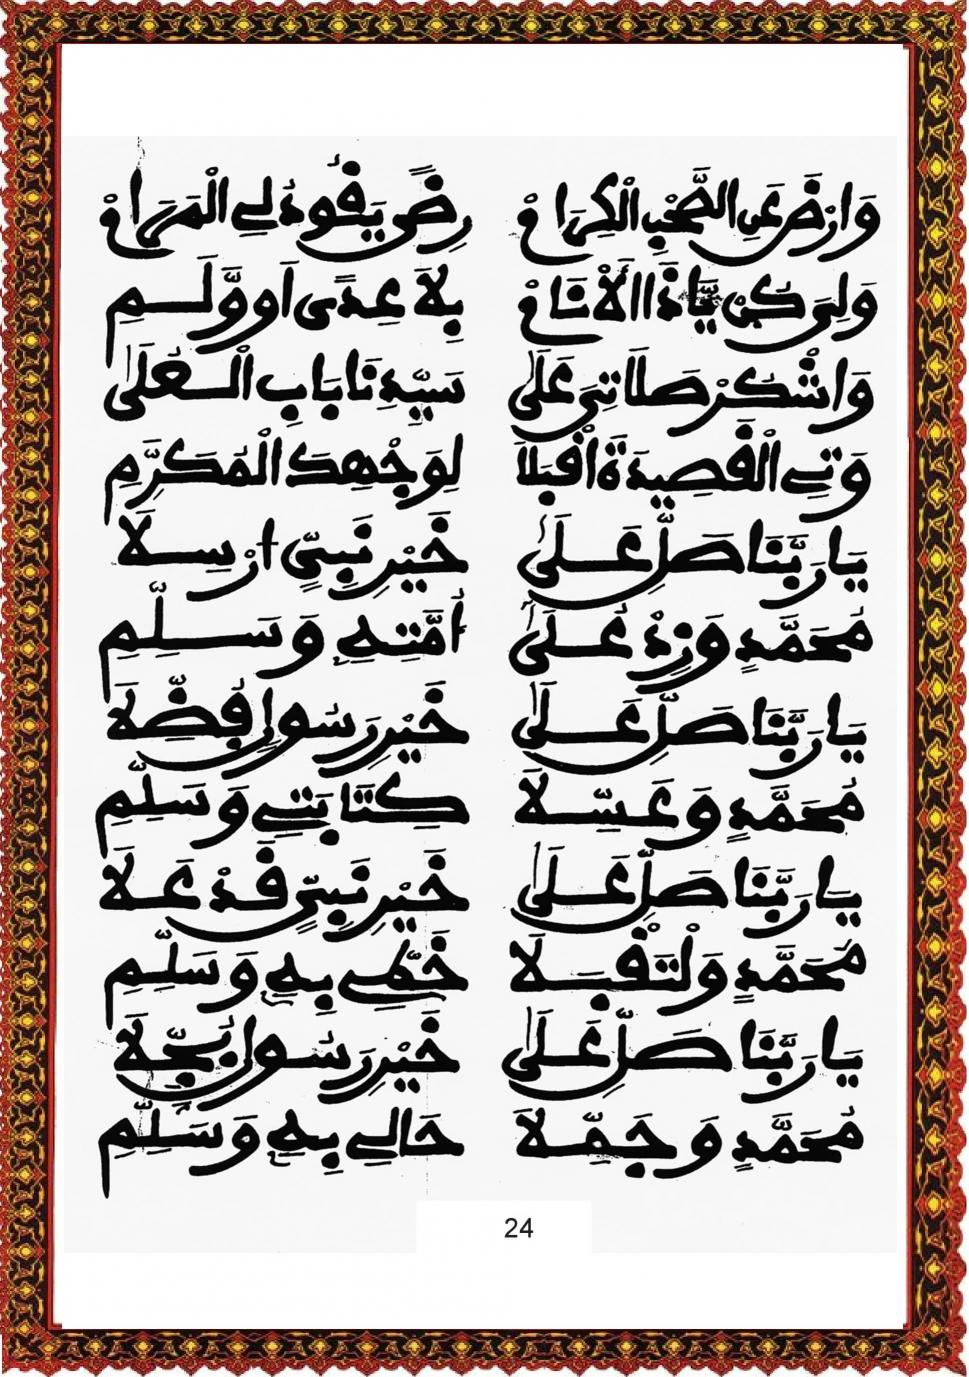 وَارْضَ عَنِ الصَّحْبِ الْكِرَامْ رِضًى يَقُودُ لِي الْمَرَامْ
وَلِي كُنْ يَا ذَا الْأَنَامْ بِلَا عِدًى أَوْ وَلَمِ
وَاشْكُرْ صَلَاتِي عَلَى سَيِّدِنَا بَابِ الْعُلَى
وَتِي الْقَصِيدَةَ اقْبَلَا لِوَجْهِكَ الْمُكَرَّمِ
يَا رَبَّنَا صَلِّ عَلَى خَيْرِ نَبِيٍّ أُرْسِلَا
مُحَمَّدٍ وَزِدْ عَلَى أُمَّتِهِ وَسَلِّمِ
يَا رَبَّنَا صَلِّ عَلَى خَيْرِ رَسُولٍ فُضِّلَا
مُحَمَّدٍ وَعَسِّلَا كِتَابَتِي وَسَلِّمِ
يَا رَبَّنَا صَلِّ عَلَى خَيْرِ نَبِيٍّ قَدْ عَلَا
مُحَمَّدٍ وَلْتَقْبَلَا خَطِّي بِهِ وَسَلِّمِ
يَا رَبَّنَا صَلِّ عَلَى خَيْرِ رَسُولٍ بُجِّلَا
مُحَمَّدٍ وَجَمِّلَا حَالِي بِهِ وَسَلِّمِ
24